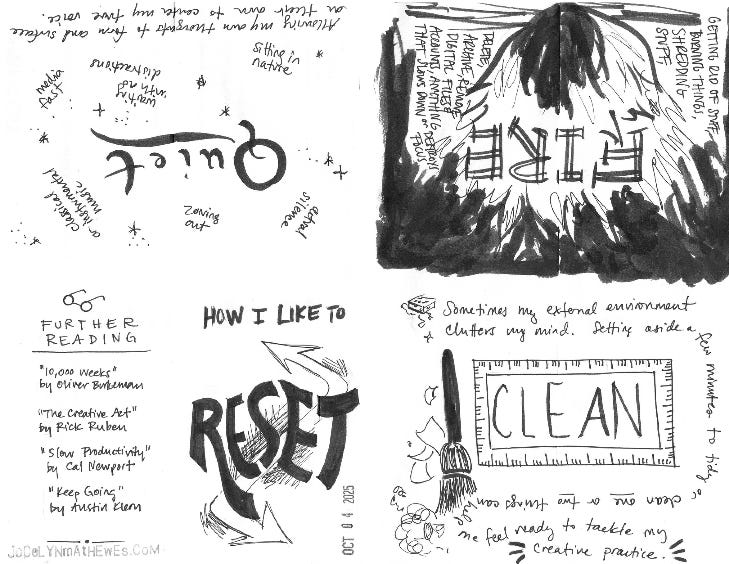 Allowing my own thoughts to form and surface
on their own to confirm my true voice.
sitting in
nature
waiting
with no
distractions
media
fast
Quiet
classical
or instrumental
music
zoning
out
actual
silence
GETTING RID OF STUFF,
BURNING THINGS,
SHREDDING
STUFF
FIRE
DELETE,
ARCHIVE, REMOVE
DIGITAL FILES,
ACCOUNTS, ANYTHING
THAT SLOWS DOWN or DESTROYS
FOCUS
FURTHER
READING
"10,000 Weeks"
by Oliver Burkeman
"The Creative Act"
by Rick Ruben
"Slow Productivity"
by Cal Newport
"Keep Going"
by Austin Kleon
JOCELYNMATHEWES.COM
HOW I LIKE TO
RESET
OCT 04 2025
Sometimes my external environment
clutters my mind. Setting aside a
few minutes to tidy or
clean one or two things can help
me feel ready to tackle my
creative practice.
CLEAN